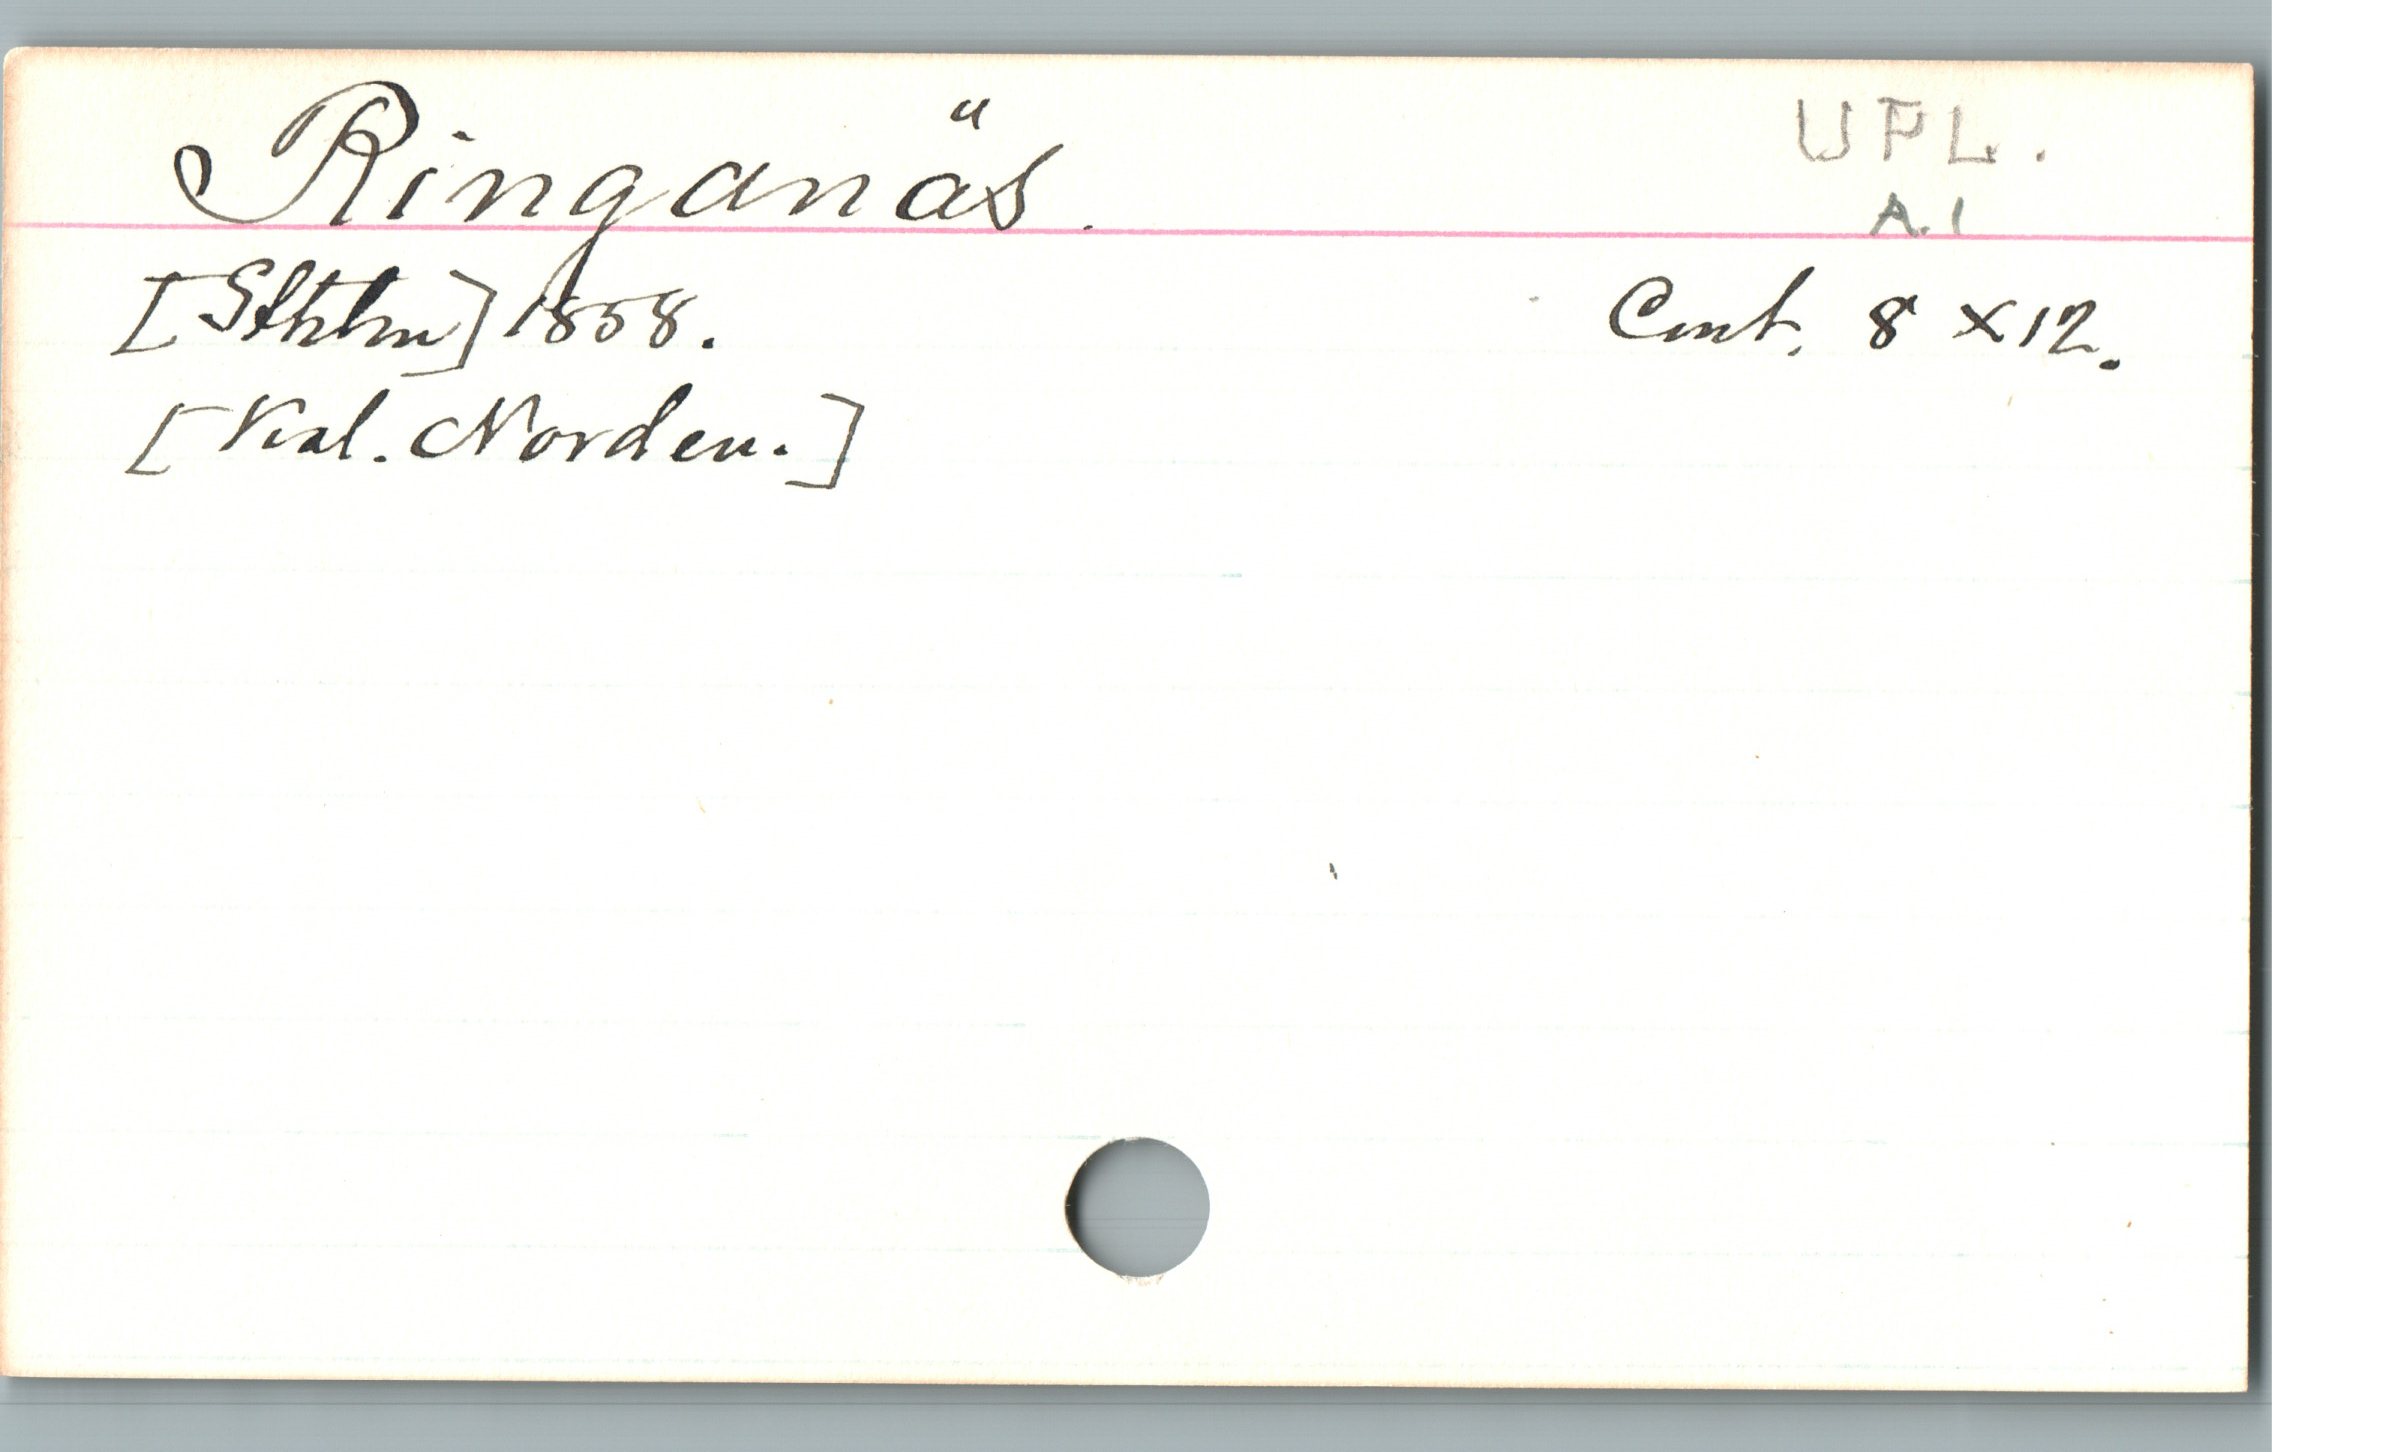 Ringanäs.
UPL.
A.1
[Sthlm] 1858.
Cont. 8 x 12.
[Kal. Norden.]